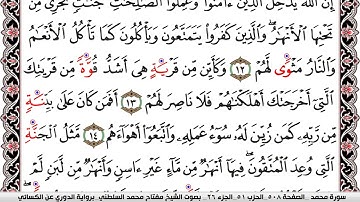 إِنَّ ٱللَّهَ يُدْخِلُ ٱلَّذِينَ ءَامَنُوا۟ وَعَمِلُوا۟ ٱلصَّٰلِحَٰتِ جَنَّٰتٍ تَجْرِى مِن
تَحْتِهَا ٱلْأَنْهَٰرُ وَٱلَّذِينَ كَفَرُوا۟ يَتَمَتَّعُونَ وَيَأْكُلُونَ كَمَا تَأْكُلُ ٱلْأَنْعَٰمُ
وَٱلنَّارُ مَثْوًى لَّهُمْ ١٢ وَكَأَيِّن مِّن قَرْيَةٍ هِىَ أَشَدُّ قُوَّةً مِّن قَرْيَتِكَ
ٱلَّتِى أَخْرَجَتْكَ أَهْلَكْنَٰهُمْ فَلَا نَاصِرَ لَهُمْ ١٣ أَفَمَن كَانَ عَلَىٰ بَيِّنَةٍ
مِّن رَّبِّهِۦ كَمَن زُيِّنَ لَهُۥ سُوٓءُ عَمَلِهِۦ وَٱتَّبَعُوٓا۟ أَهْوَآءَهُم ١٤ مَّثَلُ ٱلْجَنَّةِ
ٱلَّتِى وُعِدَ ٱلْمُتَّقُونَ فِيهَآ أَنْهَٰرٌ مِّن مَّآءٍ غَيْرِ ءَاسِنٍ وَأَنْهَٰرٌ مِّن لَّبَنٍ لَّمْ
سورة محمد _ الصفحة ٥٠٨_ الحزب ٥١ _ الجزء ٢٦ _ بصوت الشيخ مفتاح محمد السلطني_ برواية الدوري عن الكسائي